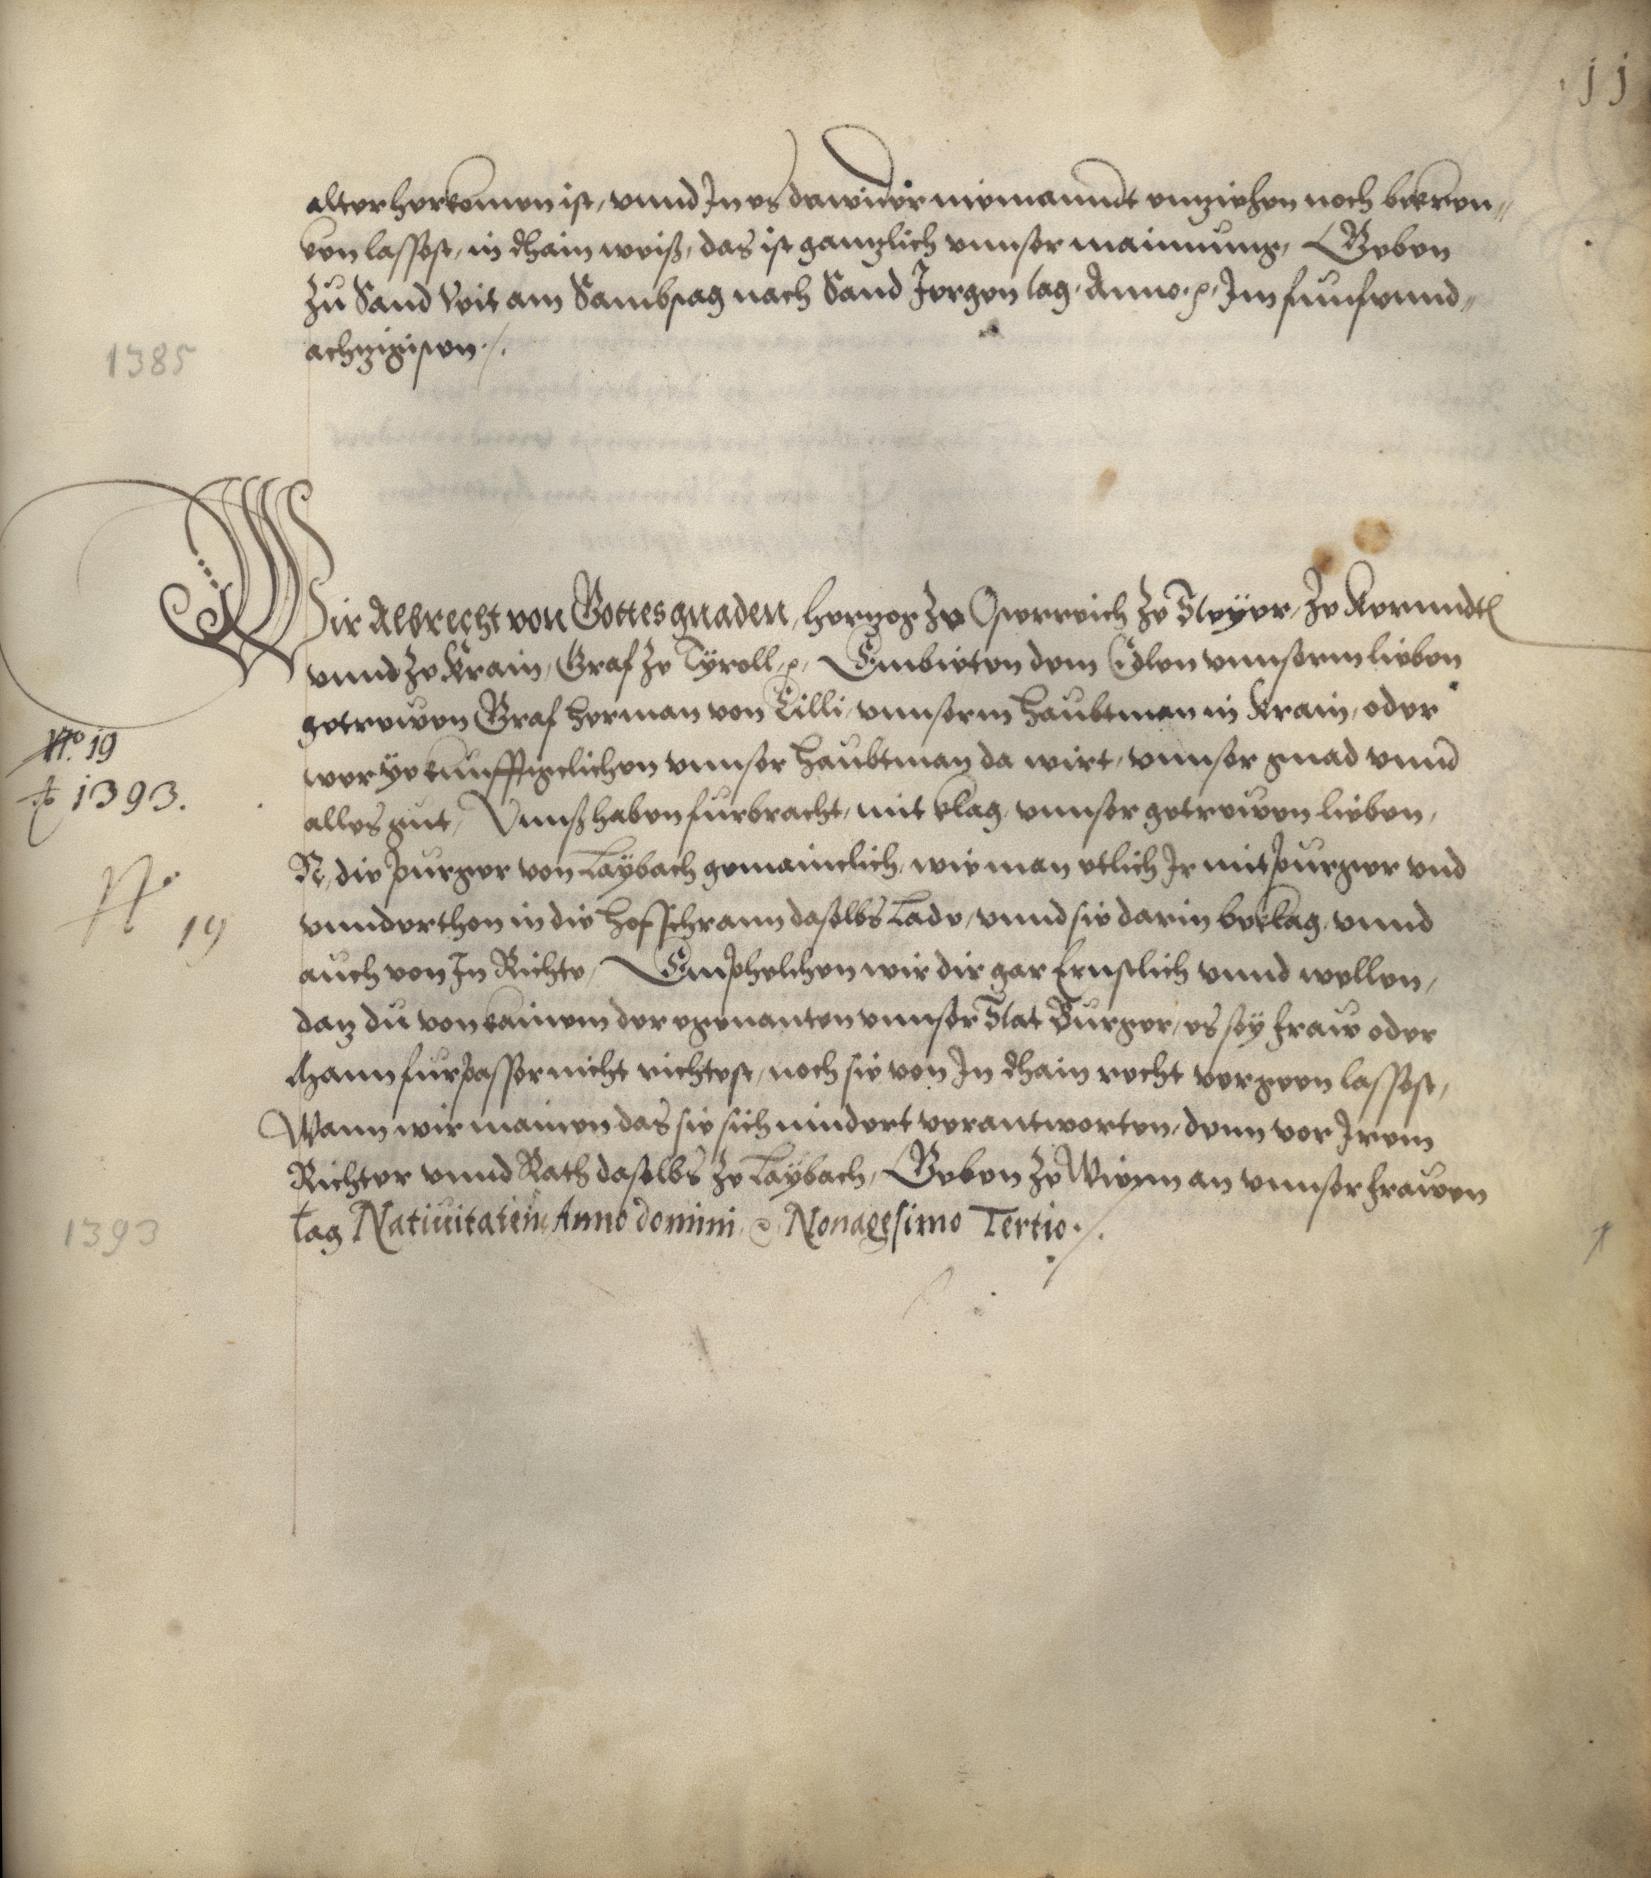 11
alter herkomen ist, vnnd In es dawider niemanndt entziehen noch bekren„
ken lassest, in dhain weiß, das ist genntzlich vnnser mainnung, Geben
zu Sand Veit am Sambstag nach Sand Jorgen tag, Anno. &c. Im funfvnnd„
achzigisten ./.
1385
Wir Albrecht von Gottes gnaden, hertzog ze Osterreich ze Steyer, ze Kernndten
vnnd ze Krain, Graf ze Tyroll, &c. Embieten dem Edlen vnnserm lieben
getrewen Graf Herman von Cilli, vnnserm haubtman in Krain, oder
wer ye kunfftigclichen vnnser haubtman da wirt, vnnser gnad vnnd
No. 19
Ao 1393.
alles gut, Vnnß haben furbracht, mit klag, vnnser getrewen lieben,
N. die purger von Laybach gemainclich, wie man etlich Ir mitpurger vnd
No 19
vnnderthon in die hofschrann daselbs lade, vnnd sie darin beklag, vnnd
auch von In Richte, Emphelchen wir dir gar Ernstlich vnnd wellen,
daz du von kainem der egenanten vnnser Stat Burger, es sey fraw oder
Mann furbasser nicht richtest, noch sie von In dhain recht vergeen lassest,
Wann wir mainen das sie sich nindert verantworten, denn vor Irem
Richter vnnd Rath daselbs ze Laybach, Geben ze Wienn an vnnser frawen
tag Natiuitatem Anno domini &c. Nonagesimo Tertio ./.
1393